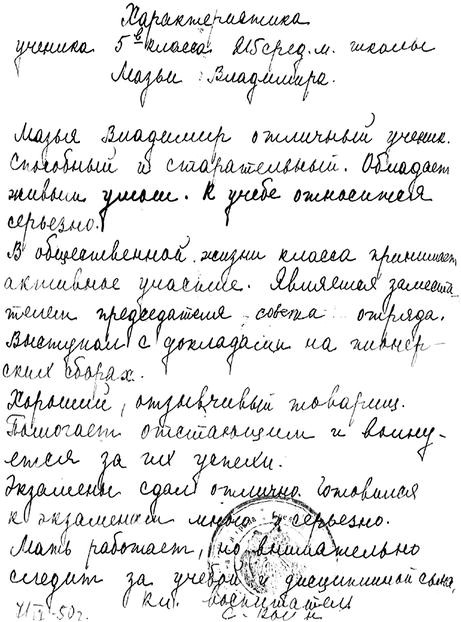 Характеристика
ученика 5 в класса 215 сред. м. школы
Мазьи Владимира.
Мазья Владимир отличный ученик.
Способный и старательный. Обладает
живым умом. К учебе относится
серьезно.
В общественной жизни класса принимает
активное участие. Являлся замести-
телем председателя совета отряда.
Выступал с докладами на пионер-
ских сборах.
Хороший, отзывчивый товарищ.
Помогает отстающим и волну-
ется за их успехи.
Экзамены сдал отлично. Готовился
к экзаменам много и серьезно.
Мать работает, но внимательно
следит за учебой и дисциплиной сына.
кл. воспитатель
50г.